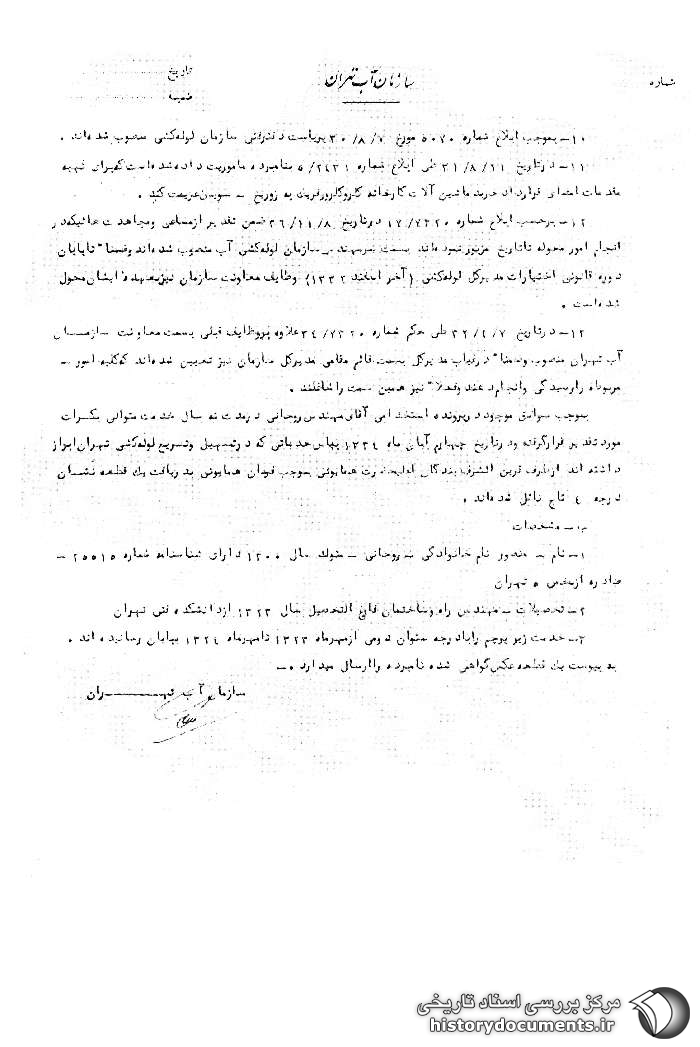 شماره
سازمان آب تهران
تاریخ
ضمیمه
۱۰ــ بموجب ابلاغ شماره ۵۰۷۰ مورخ ۳۰/۸/۷ بریاست دفتر فنی سازمان لوله‌کشی منصوب شده‌اند .
۱۱ــ در تاریخ ۳۱/۸/۱۱ طی ابلاغ شماره ۵/۲۴۳۱ بنامبرده ماموریت داده شده است که برای تهیه
مقدمات امضای قرارداد خرید ماشین آلات کارخانه به زوریخ ــ سویس عزیمت کند .
۱۲ــ برحسب ابلاغ شماره ۱۷/۷۴۲۰ در تاریخ ۳۶/۱۱/۸ ضمن تقدیر از مساعی و مجاهدت هائیکه در
انجام امور محوله تا تاریخ مزبور نموده‌اند بسمت سرمهندس سازمان لوله‌کشی آب منصوب شده‌اند و ضمنا" تا پایان
دوره قانونی اختیارات مدیرکل لوله‌کشی (آخر اسفند ۱۳۳۲) وظایف معاونت سازمان نیز بعهده ایشان محول
شده‌است .
۱۳ــ در تاریخ ۳۲/۴/۷ طی حکم شماره ۳۴/۷۳۲۰ علاوه بر وظایف قبلی بسمت معاونت سازمان
آب تهران منصوب و ضمنا" در غیاب مدیرکل بسمت قائم مقامی مدیرکل سازمان نیز تعیین شده‌اند که کلیه امور ــ
مربوطه را رسیدگی و انجام دهند و فعلا" نیز همین سمت را شاغلند .
بموجب سوابق موجود در پرونده استخدامی آقای مهندس روحانی در مدت نه سال خدمت متوالی بکرات
مورد تقدیر قرار گرفته و در تاریخ چهارم آبان ماه ۱۳۳۴ بپاس خدماتی که در تسهیل و تسریع لوله‌کشی تهران ابراز
داشته‌اند از طرف قرین الشرف بندگان اعلیحضرت همایونی بموجب فرمان همایونی بدریافت یک قطعه نشان
درجه ۴ تاج نائل شده‌اند .
ب ــ مشخصات
۱ــ نام ــ منصور نام خانوادگی ــ روحانی ــ متولد سال ۱۳۰۰ دارای شناسنامه شماره ۲۵۵۱۵ ــ
صادره از بخش ۵ تهران
۲ــ تحصیلات ــ مهندس راه و ساختمان فارغ التحصیل سال ۱۳۲۳ از دانشکده فنی تهران
۳ــ خدمت زیر پرچم را با درجه ستوان دومی از مهرماه ۱۳۲۳ تا مهرماه ۱۳۲۴ بپایان رسانیده‌اند .
به پیوست یک قطعه عکس گواهی شده نامبرده را ارسال میدارد .ــ
سازمان آب تهــــران
مرکز بررسی اسناد تاریخی
historydocuments.ir